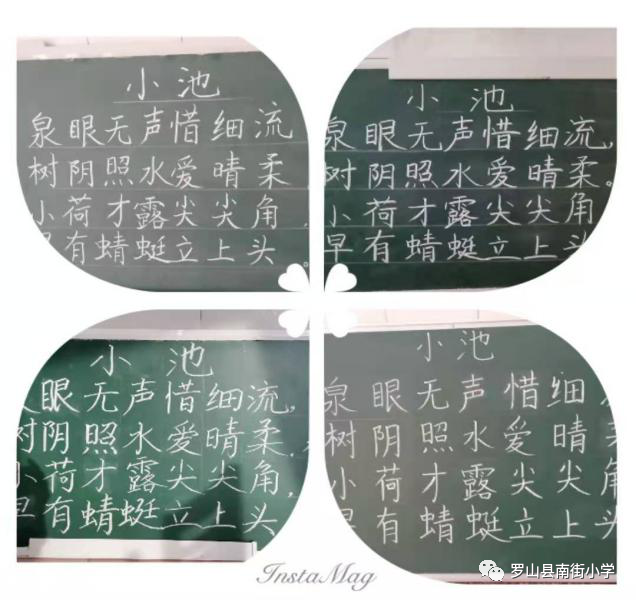 小池
泉眼无声惜细流
树阴照水爱晴柔
小荷才露尖尖角,
早有蜻蜓立上头。
小池
泉眼无声惜细流,
树阴照水爱晴柔。
小荷才露尖尖角
早有蜻蜓立上头
小池
眼无声惜细流,
树阴照水爱晴柔.
小荷才露尖尖角,
早有蜻蜓立上头
小池
泉眼无声惜细
树阴照水爱晴
小荷才露尖尖角
早有蜻蜓立上头
InstaMag
罗山县南街小学